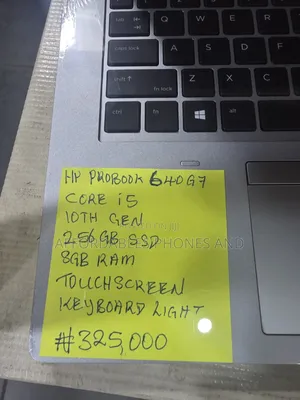 tab
Q
W
E
caps lock
A
S
D
F
shift
Z
X
C
ctrl
fn
alt
HP PROBOOK 640G7
CORE i5
10TH GEN
256GB SSD
AFFORDABLE PHONES AND
8GB RAM
TOUCHSCREEN
KEYBOARD LIGHT
₦325,000